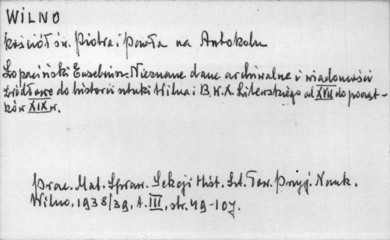 WILNO
kościół św. Piotra i Pawła na Antokolu
Łopaciński Euzebiusz. Nieznane dane archiwalne i wiadomości
źródłowe do historii sztuki Wilna i B.W.X. Litewskiego od XVII do począt-
ków XIX w.
Prac. Mat. Spraw. Sekcji Hist. Szt. Tow. Przyj. Nauk.
Wilno, 1938/39, t. III, str. 49-107.